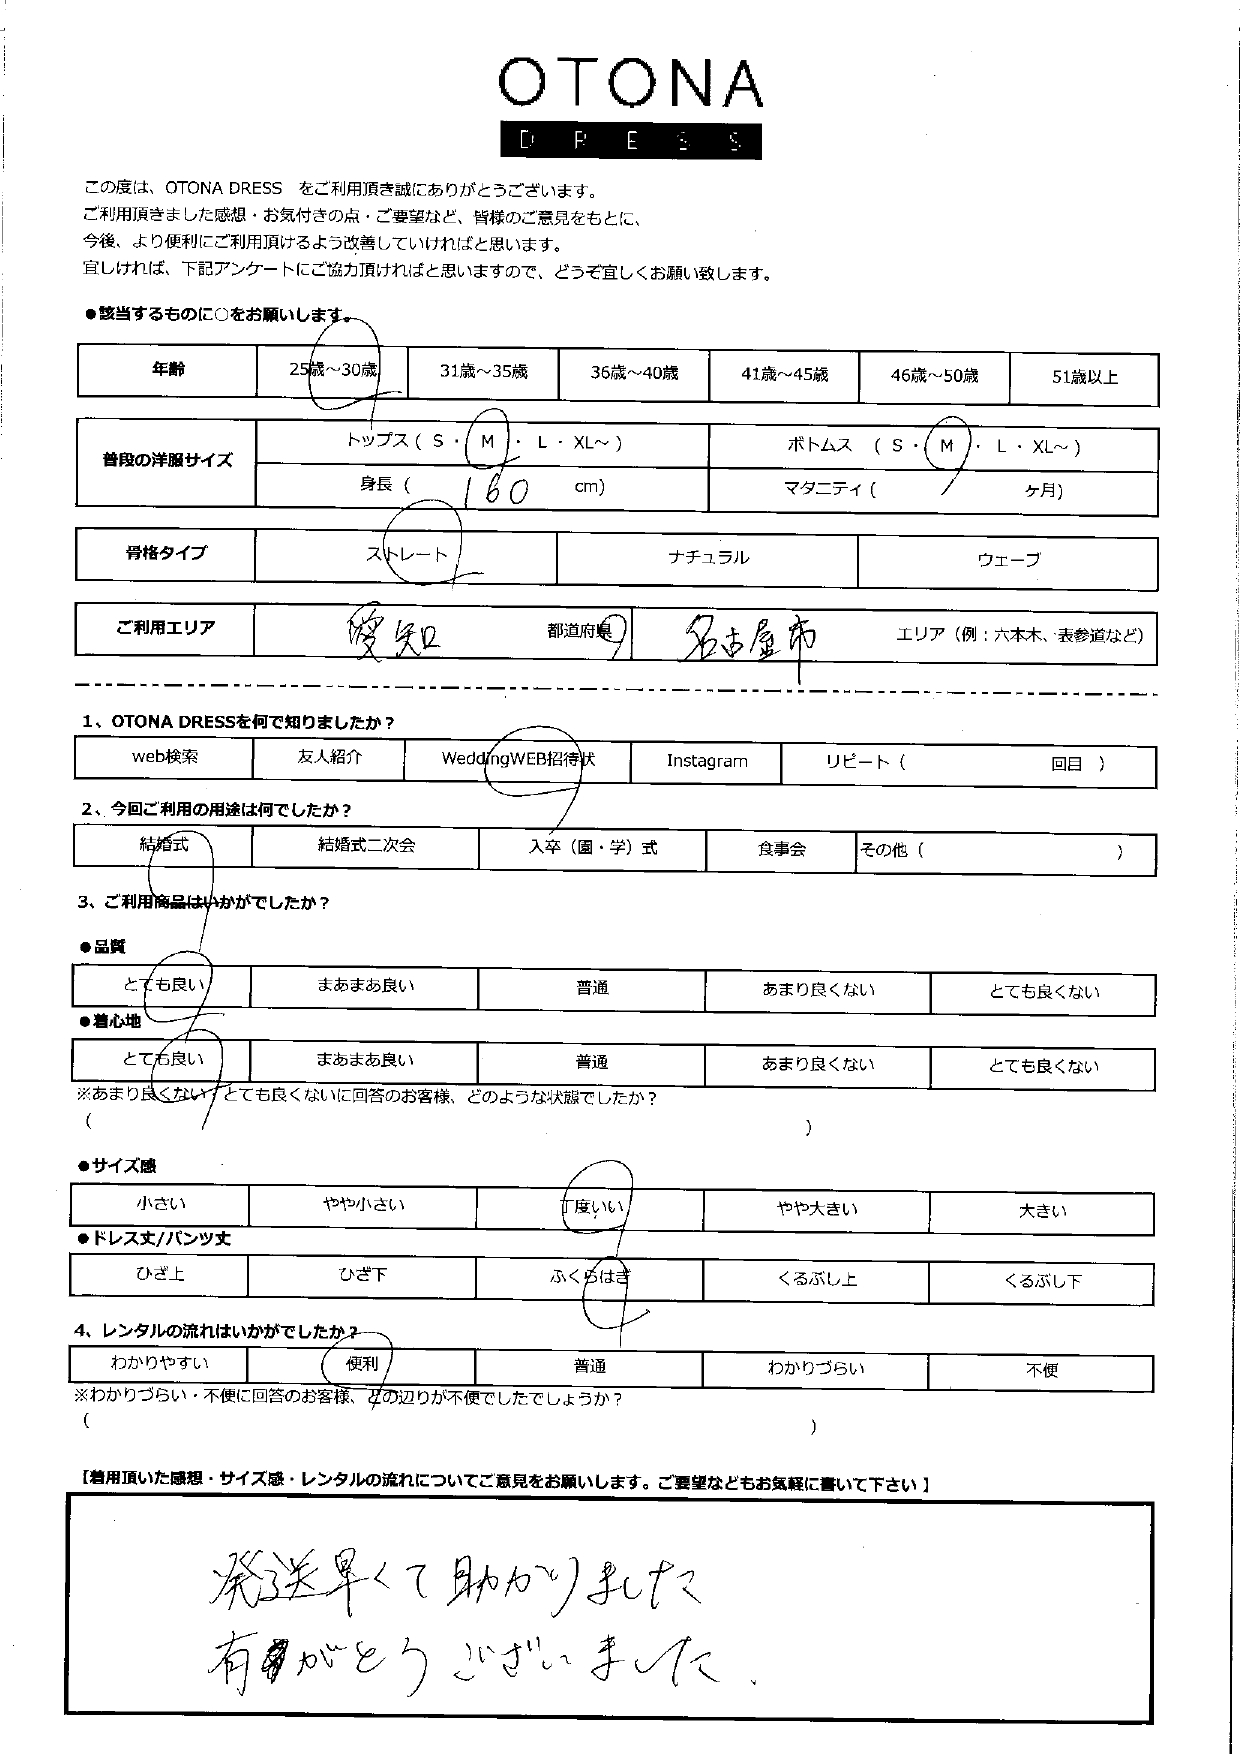 OTONA
DRESS
この度は、OTONA DRESS をご利用頂き誠にありがとうございます。
ご利用頂きました感想・お気付きの点・ご要望など、皆様のご意見をもとに、
今後、より便利にご利用頂けるよう改善していければと思います。
宜しければ、下記アンケートにご協力頂ければと思いますので、どうぞ宜しくお願い致します。
●該当するものに○をお願いします。
年齢 25歳～30歳 31歳～35歳 36歳～40歳 41歳～45歳 46歳～50歳 51歳以上
普段の洋服サイズ トップス ( S ・ M ・ L ・ XL～ ) ボトムス ( S ・ M ・ L ・ XL～ )
身長 ( 160 cm) マタニティ ( ヶ月)
骨格タイプ ストレート ナチュラル ウェーブ
ご利用エリア 愛知 都道府県 名古屋市 エリア（例：六本木、表参道など）
1、OTONA DRESSを何で知りましたか？
web検索 友人紹介 WeddingWEB招待状 Instagram リピート（ 回目 ）
2、今回ご利用の用途は何でしたか？
結婚式 結婚式二次会 入卒（園・学）式 食事会 その他（ ）
3、ご利用商品はいかがでしたか？
●品質
とても良い まあまあ良い 普通 あまり良くない とても良くない
●着心地
とても良い まあまあ良い 普通 あまり良くない とても良くない
※あまり良くない、とても良くないに回答のお客様、どのような状態でしたか？
( )
●サイズ感
小さい やや小さい 丁度いい やや大きい 大きい
●ドレス丈/パンツ丈
ひざ上 ひざ下 ふくらはぎ くるぶし上 くるぶし下
4、レンタルの流れはいかがでしたか？
わかりやすい 便利 普通 わかりづらい 不便
※わかりづらい・不便に回答のお客様、どの辺りが不便でしたでしょうか？
( )
【着用頂いた感想・サイズ感・レンタルの流れについてご意見をお願いします。ご要望などもお気軽に書いて下さい】
発送早くて助かりました
有がとうございました.